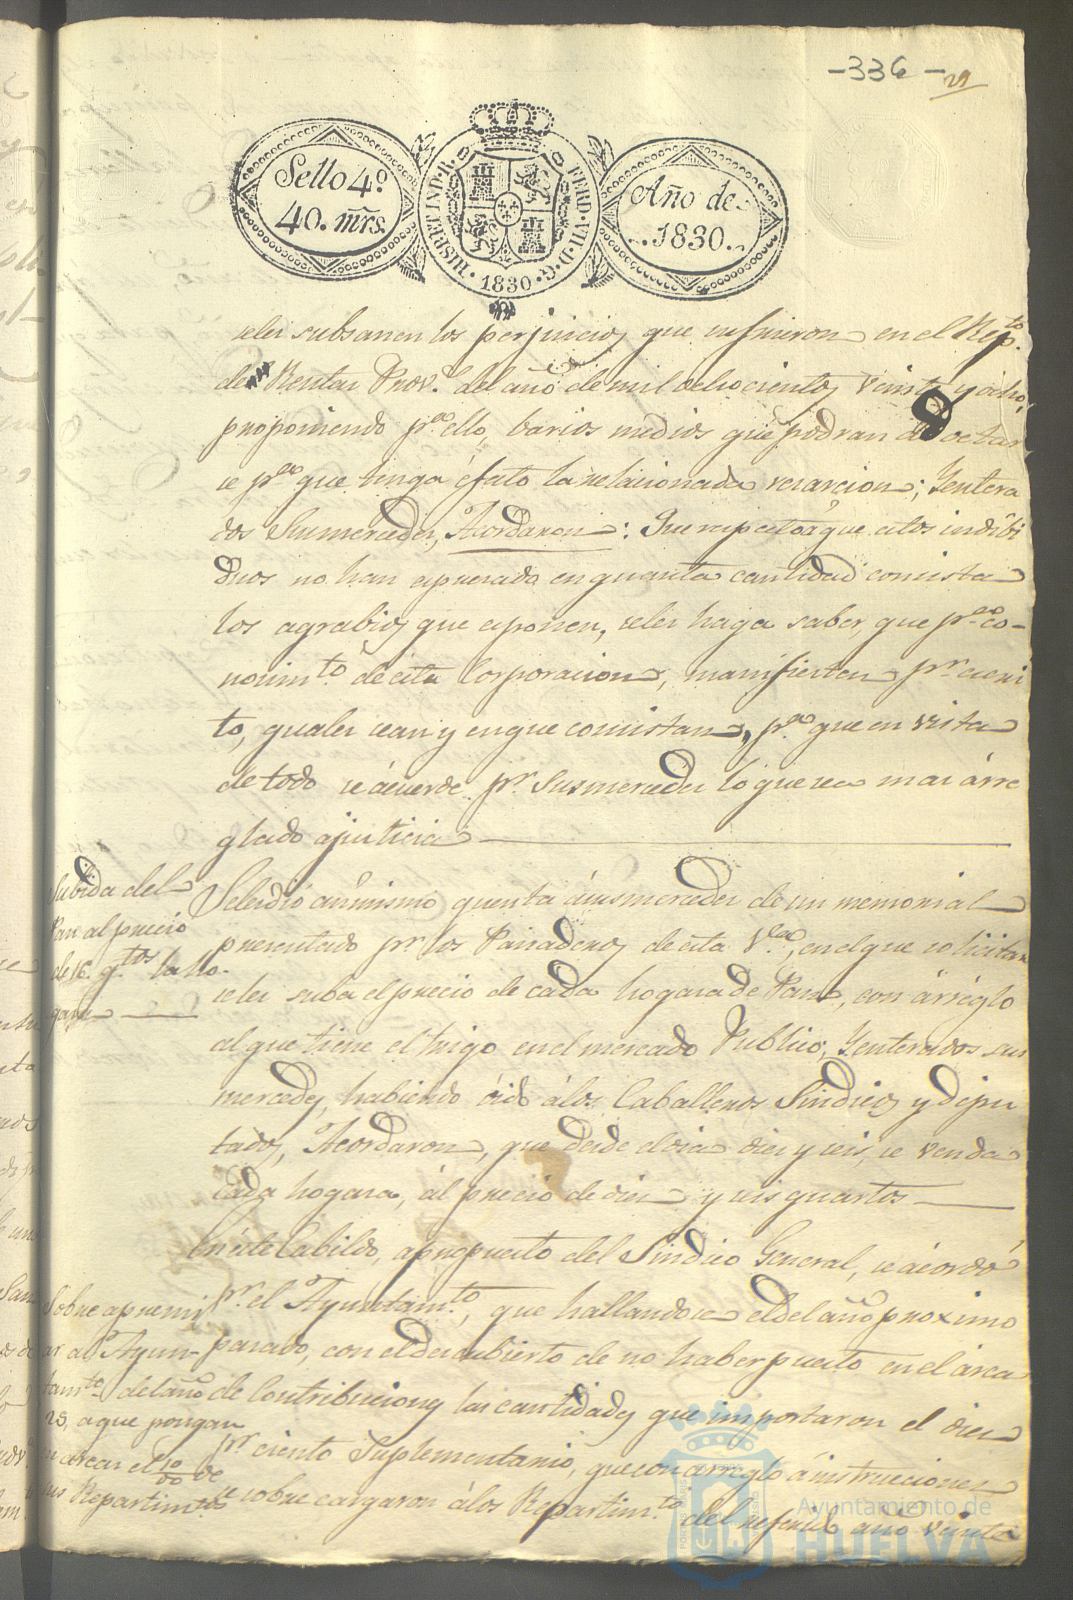 -336-
29
Sello 4º
40. mrs.
HISP. ET IND. R.
FERD. VII. D. G.
1830
Año de
1830.
seles subsanen los perjuicios que sufrieron en el Rep.to
de Rentas Prov.s del año de mil ochocientos veinte y ocho,
proponiendo p.ª ello, barios medios que podran adoctar
se p.ª que tenga efeto la relacionada resarcion; Yentera
dos Susmercedes, Acordaron: Que respecto a que estos indibi
duos no han espresado en quanta cantidad consista
los agrabios que esponen, seles haga saber, que p.ª co-
nocim.to de esta Corporacion, manifiesten p.r escri
to, quales sean y en que consistan, p.ª que en vista
de todo se acuerde p.r Susmercedes lo que sea mas arre
glado a justicia
Subida del
Pan al precio
de 16. q.tos la ho-
gaza
Seledió asimismo quenta ásusmercedes de un memorial
presentado p.r los Panaderos de esta V.ª, en el que solicitan
seles suba el precio de cada hogaza de Pan, con arreglo
al que tiene el trigo en el mercado Publico; Yenterados sus
mercedes, habiendo oido álos Caballeros Sindicos y dipu
tados, Acordaron, que desde el dia diez y seis, se venda
Cada hogaza, al precio de diez y seis quartos
En este Cabildo, a propuesto del Sindico General, se ácordó
Sobre apremi
ar al Ayun-
tam.to del año
28, a que pongan
en arcas el 10
p.r % de
sus Repartim.tos
p.r el Ayuntam.to, que hallandose el del año proximo
pasado, con el descubierto de no haber puesto en el arca
de Contribuciones las cantidades que importaron el diez
p.r ciento Suplementario, que con arreglo á instrucciones
se sobre cargaron álos Repartim.tos del referido año veinte
Ayuntamiento de
HUELVA